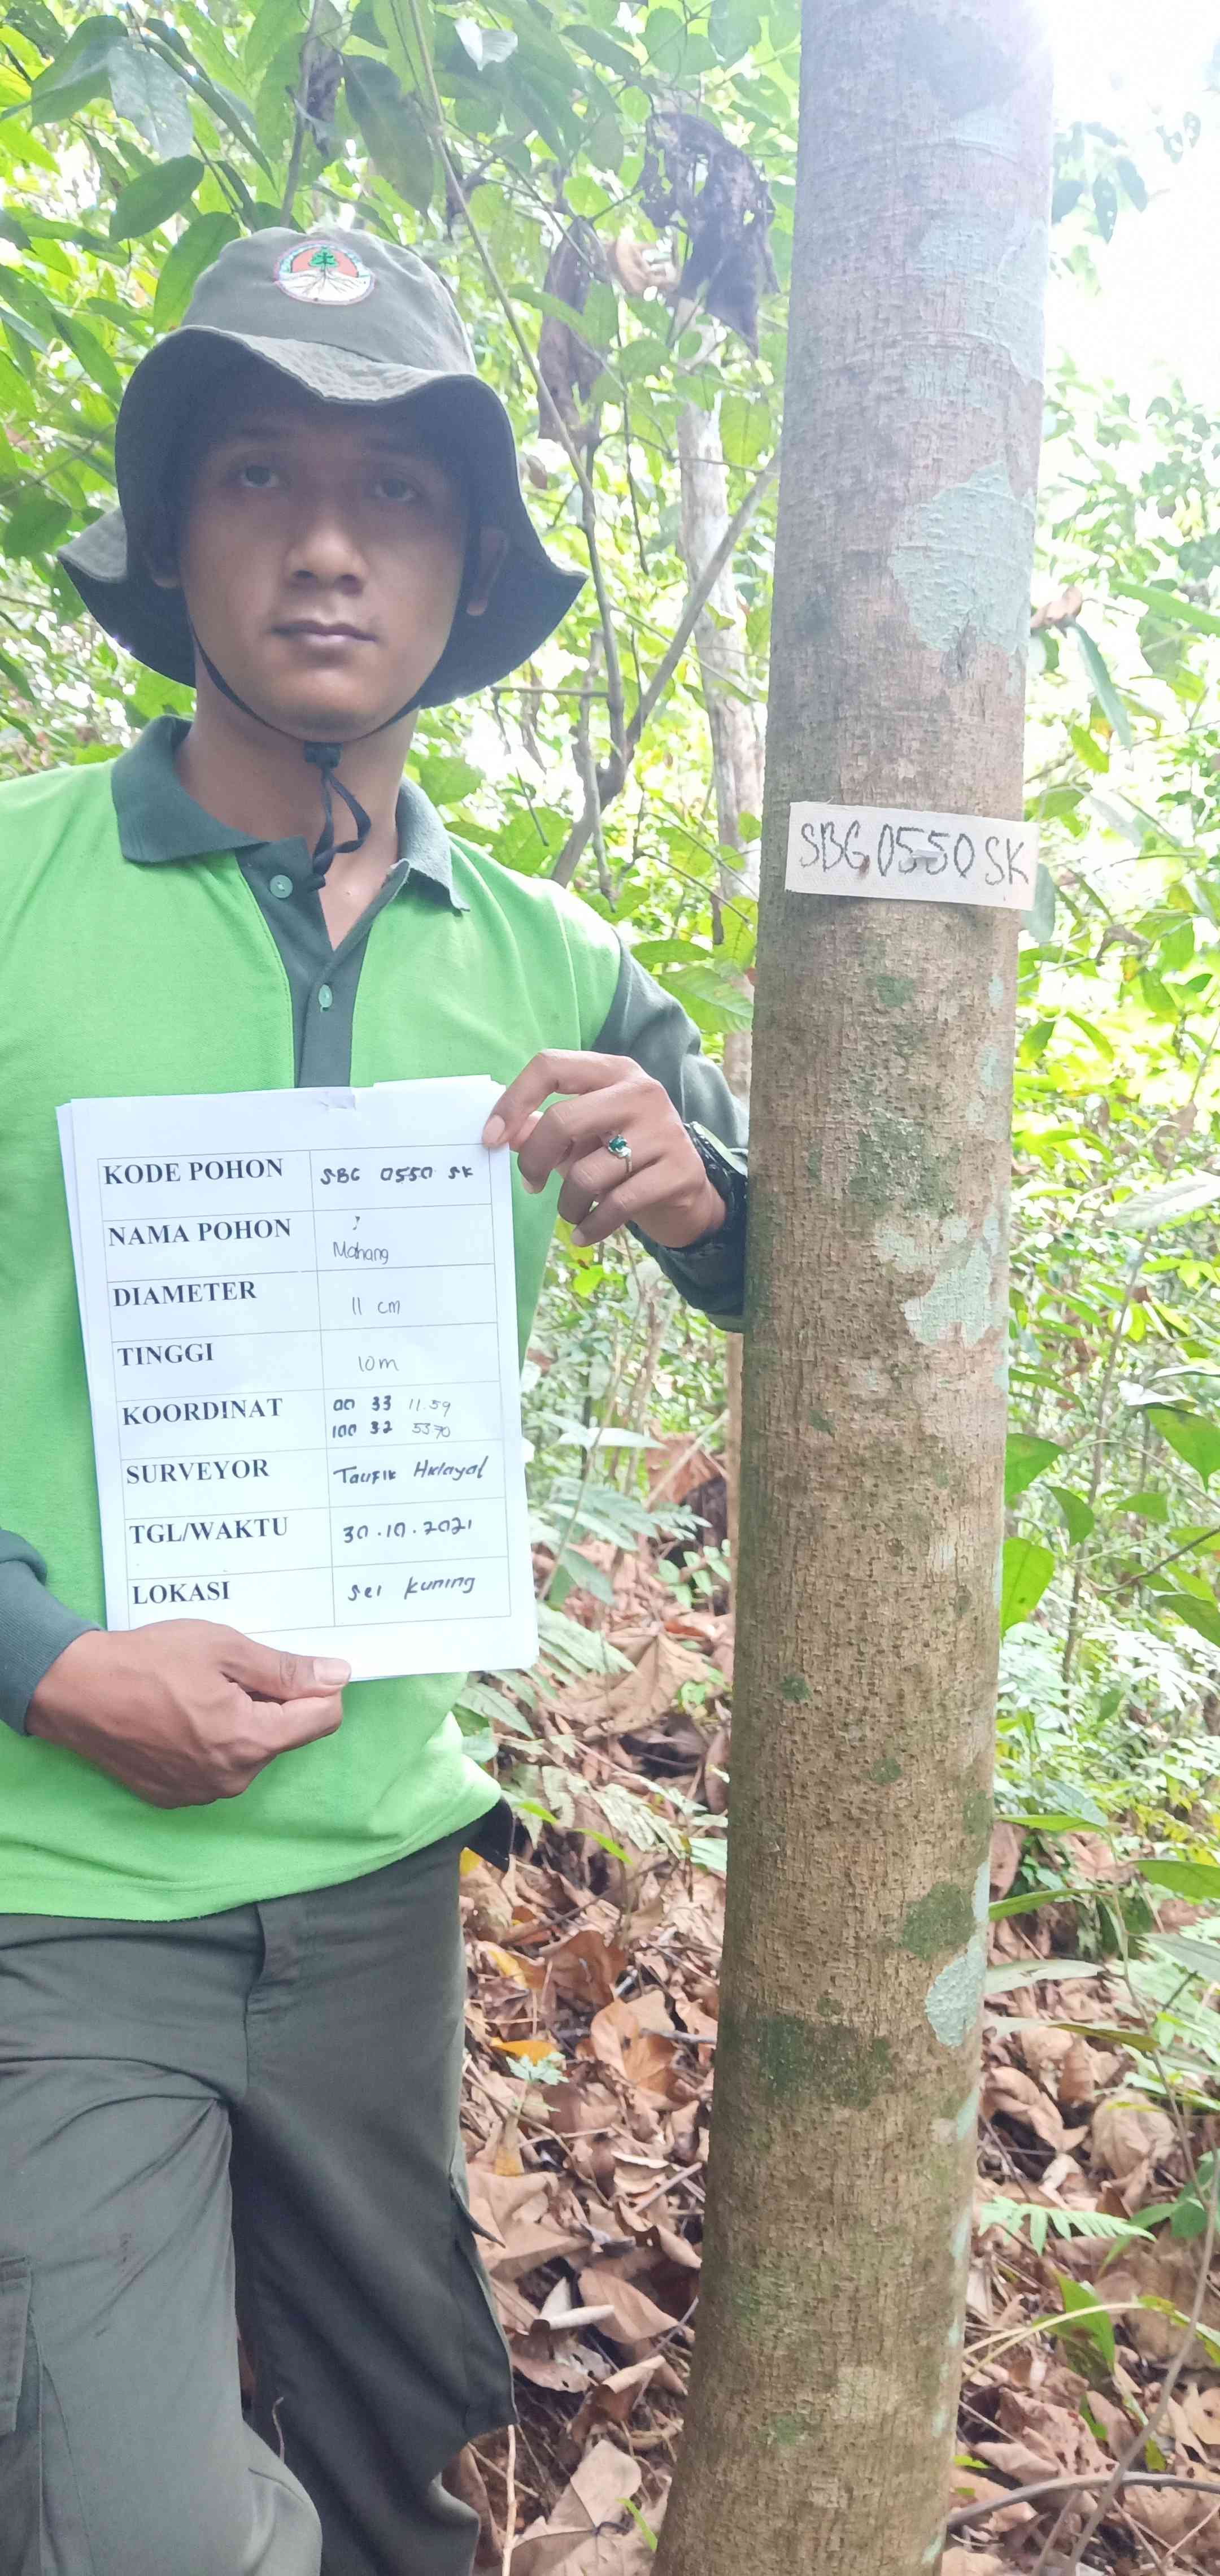 SBG 0550 SK
KODE POHON SBG 0550 SK
NAMA POHON Mahang
DIAMETER 11 cm
TINGGI 10m
KOORDINAT 00 33 11.59
100 32 5370
SURVEYOR Taufik
TGL/WAKTU 30.10.2021
LOKASI Sei Kuning